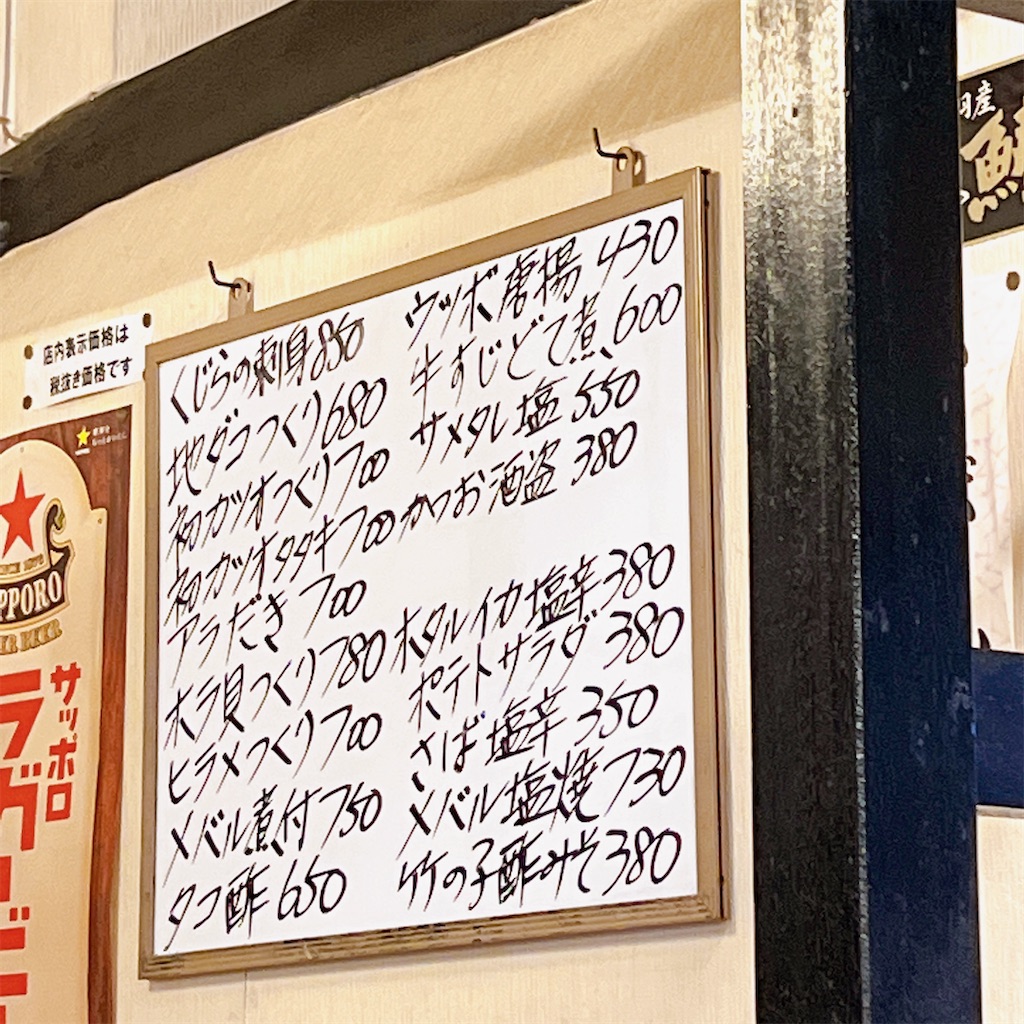 店内表示価格は
税抜き価格です
くじらの刺身850
地ダコつくり680
初ガツオつくり700
初ガツオタタキ700
アラだき700
ホラ貝つくり780
ヒラメつくり700
メバル煮付750
タコ酢650
ウツボ唐揚430
牛すじどて煮600
サメタレ塩550
かつお酒盗380
ホタルイカ塩辛380
ポテトサラダ380
さば塩辛350
メバル塩焼730
竹の子酢みそ380
サッポロ
ラガー